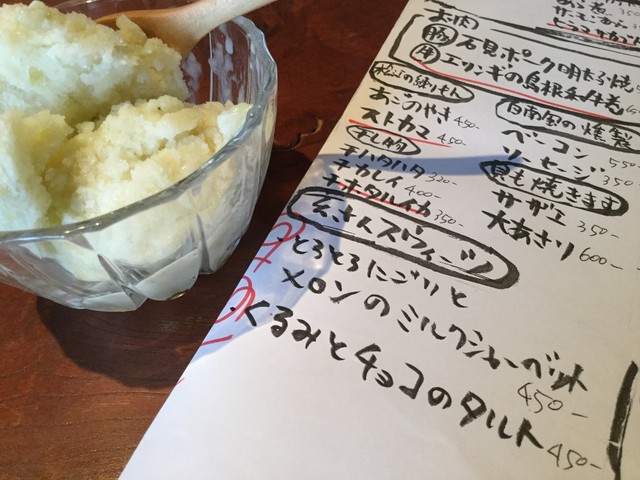 お肉
豚 石見ポーク明太焼
牛 エリンギの島根和牛巻
あごのやき 450-
ストカマ 450-
干し物
干ハタハタ 320-
干カレイ 400-
干ホタルイカ 350-
自南風の燻製
ベーコン 550
ソーセージ 350
貝も焼きます
サザエ 350-
大あさり 600-
玄さんスウィーツ
・とろとろにごりと
メロンのミルクシャーベット
450-
・くるみとチョコのタルト
450-